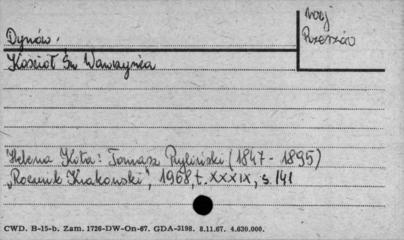 Dynów.
woj
Rzeszów
Kościół Św Wawrzyńca
Helena Kóta: Tomasz Pryliński (1847 - 1895)
„Rocznik Krakowski", 1968, t. XXXIX, s. 141
CWD. B-15-b. Zam. 1726-DW-On-67. GDA-3198. 8.11.67. 4.630.000.